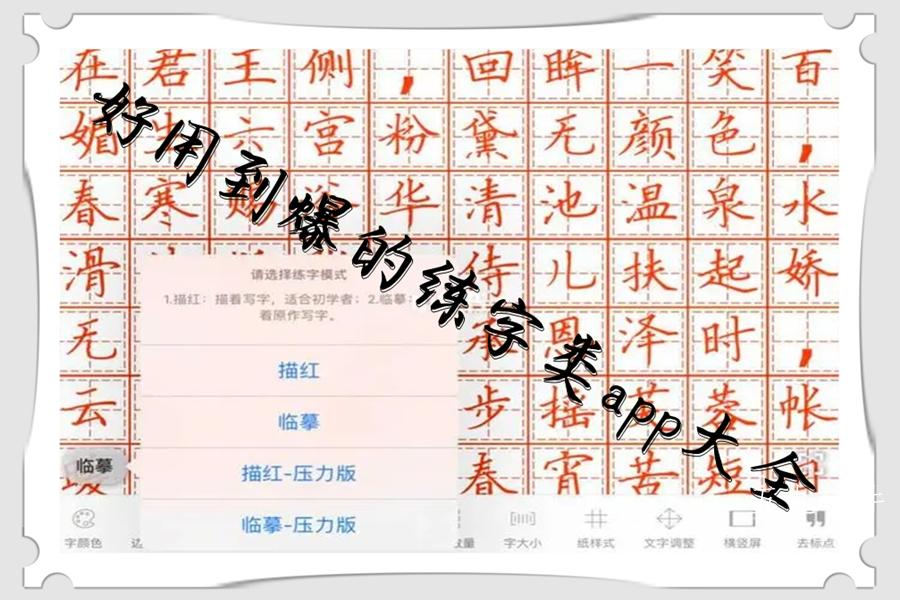 在君王侧，回眸一笑百
媚生六宫粉黛无颜色，
春寒赐浴华清池温泉水
滑侍儿扶起娇
无承恩泽时，
云步摇芙蓉帐
暖春宵苦短日
好用到爆的练字类app大全
请选择练字模式
1.描红：描着写字，适合初学者；2.临摹：
着原作写字。
描红
临摹
描红-压力版
临摹-压力版
临摹
字颜色 边 数量 字大小 纸样式 文字调整 横竖屏 去标点